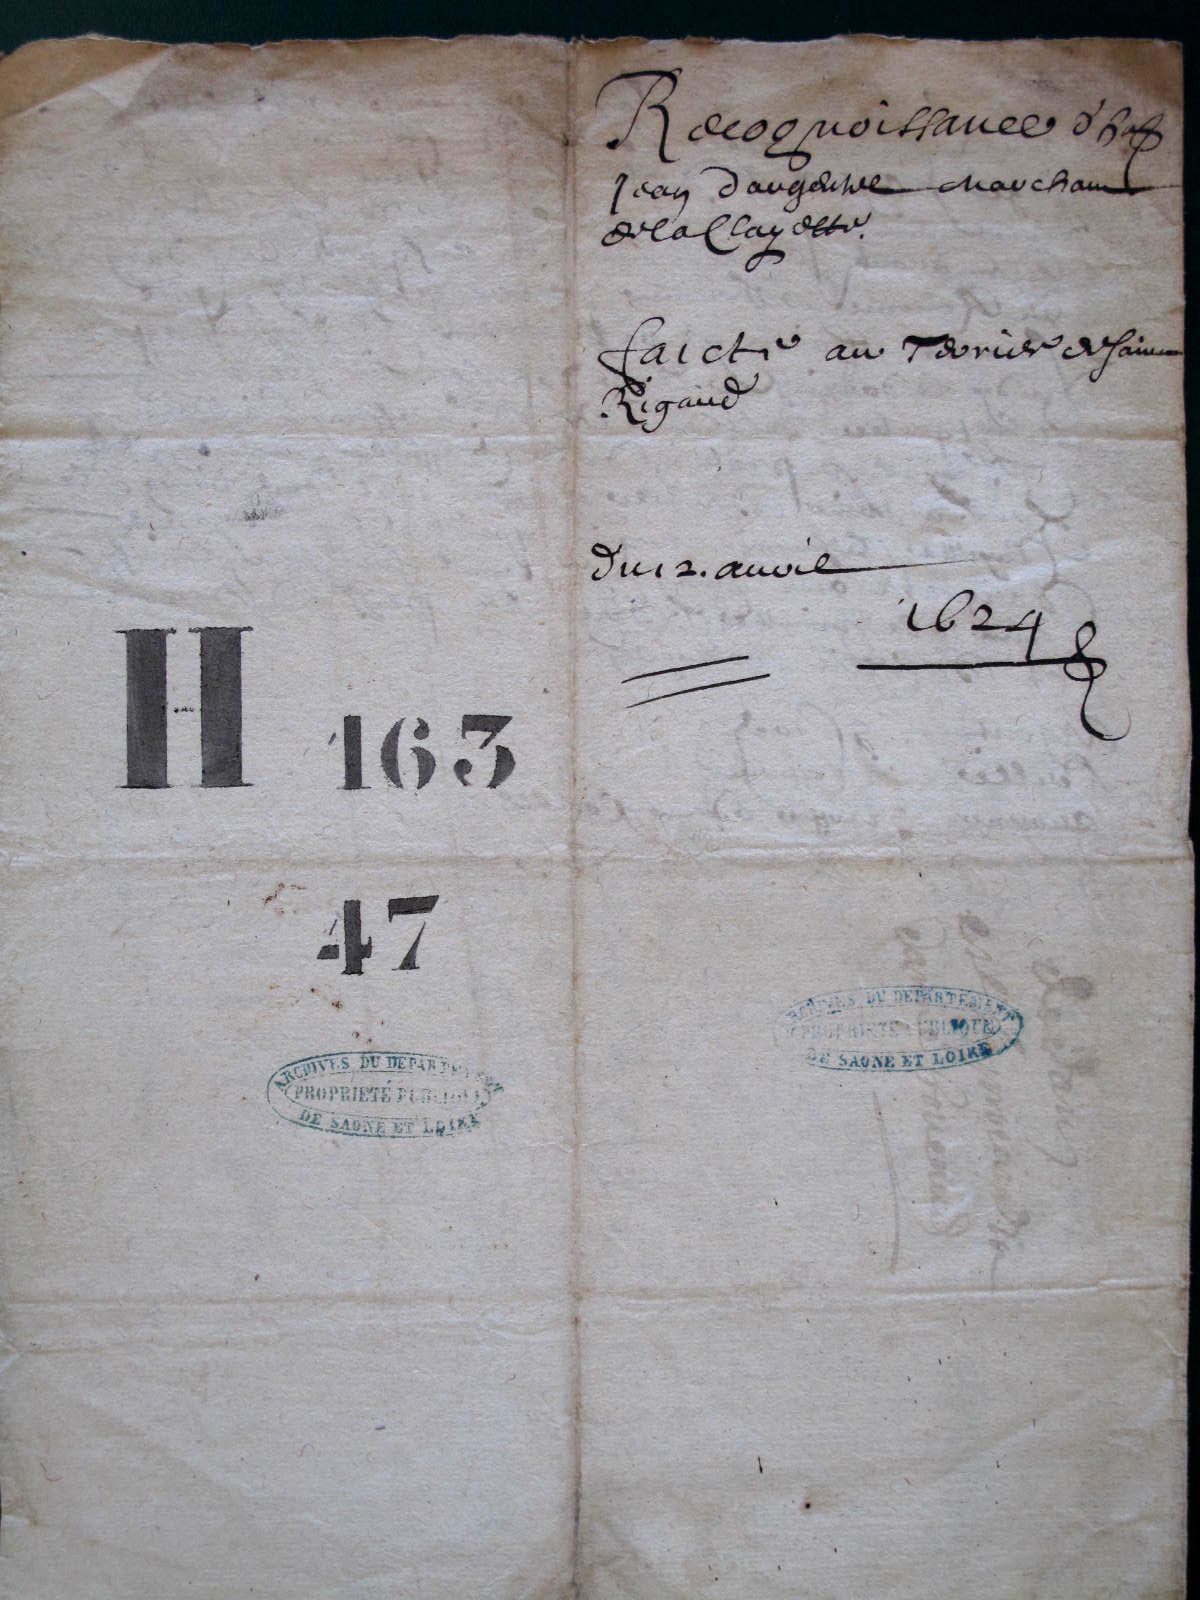 Recognoissance d'hoe
Jean daugeulne marchant
de la Clayette.
faicte au Terrier de sainct
Rigaud
du 12. auril
1624
H 163
47
ARCHIVES DU DEPARTEMENT
PROPRIETÉ PUBLIQUE
DE SAONE ET LOIRE
ARCHIVES DU DEPARTEMENT
PROPRIETÉ PUBLIQUE
DE SAONE ET LOIRE